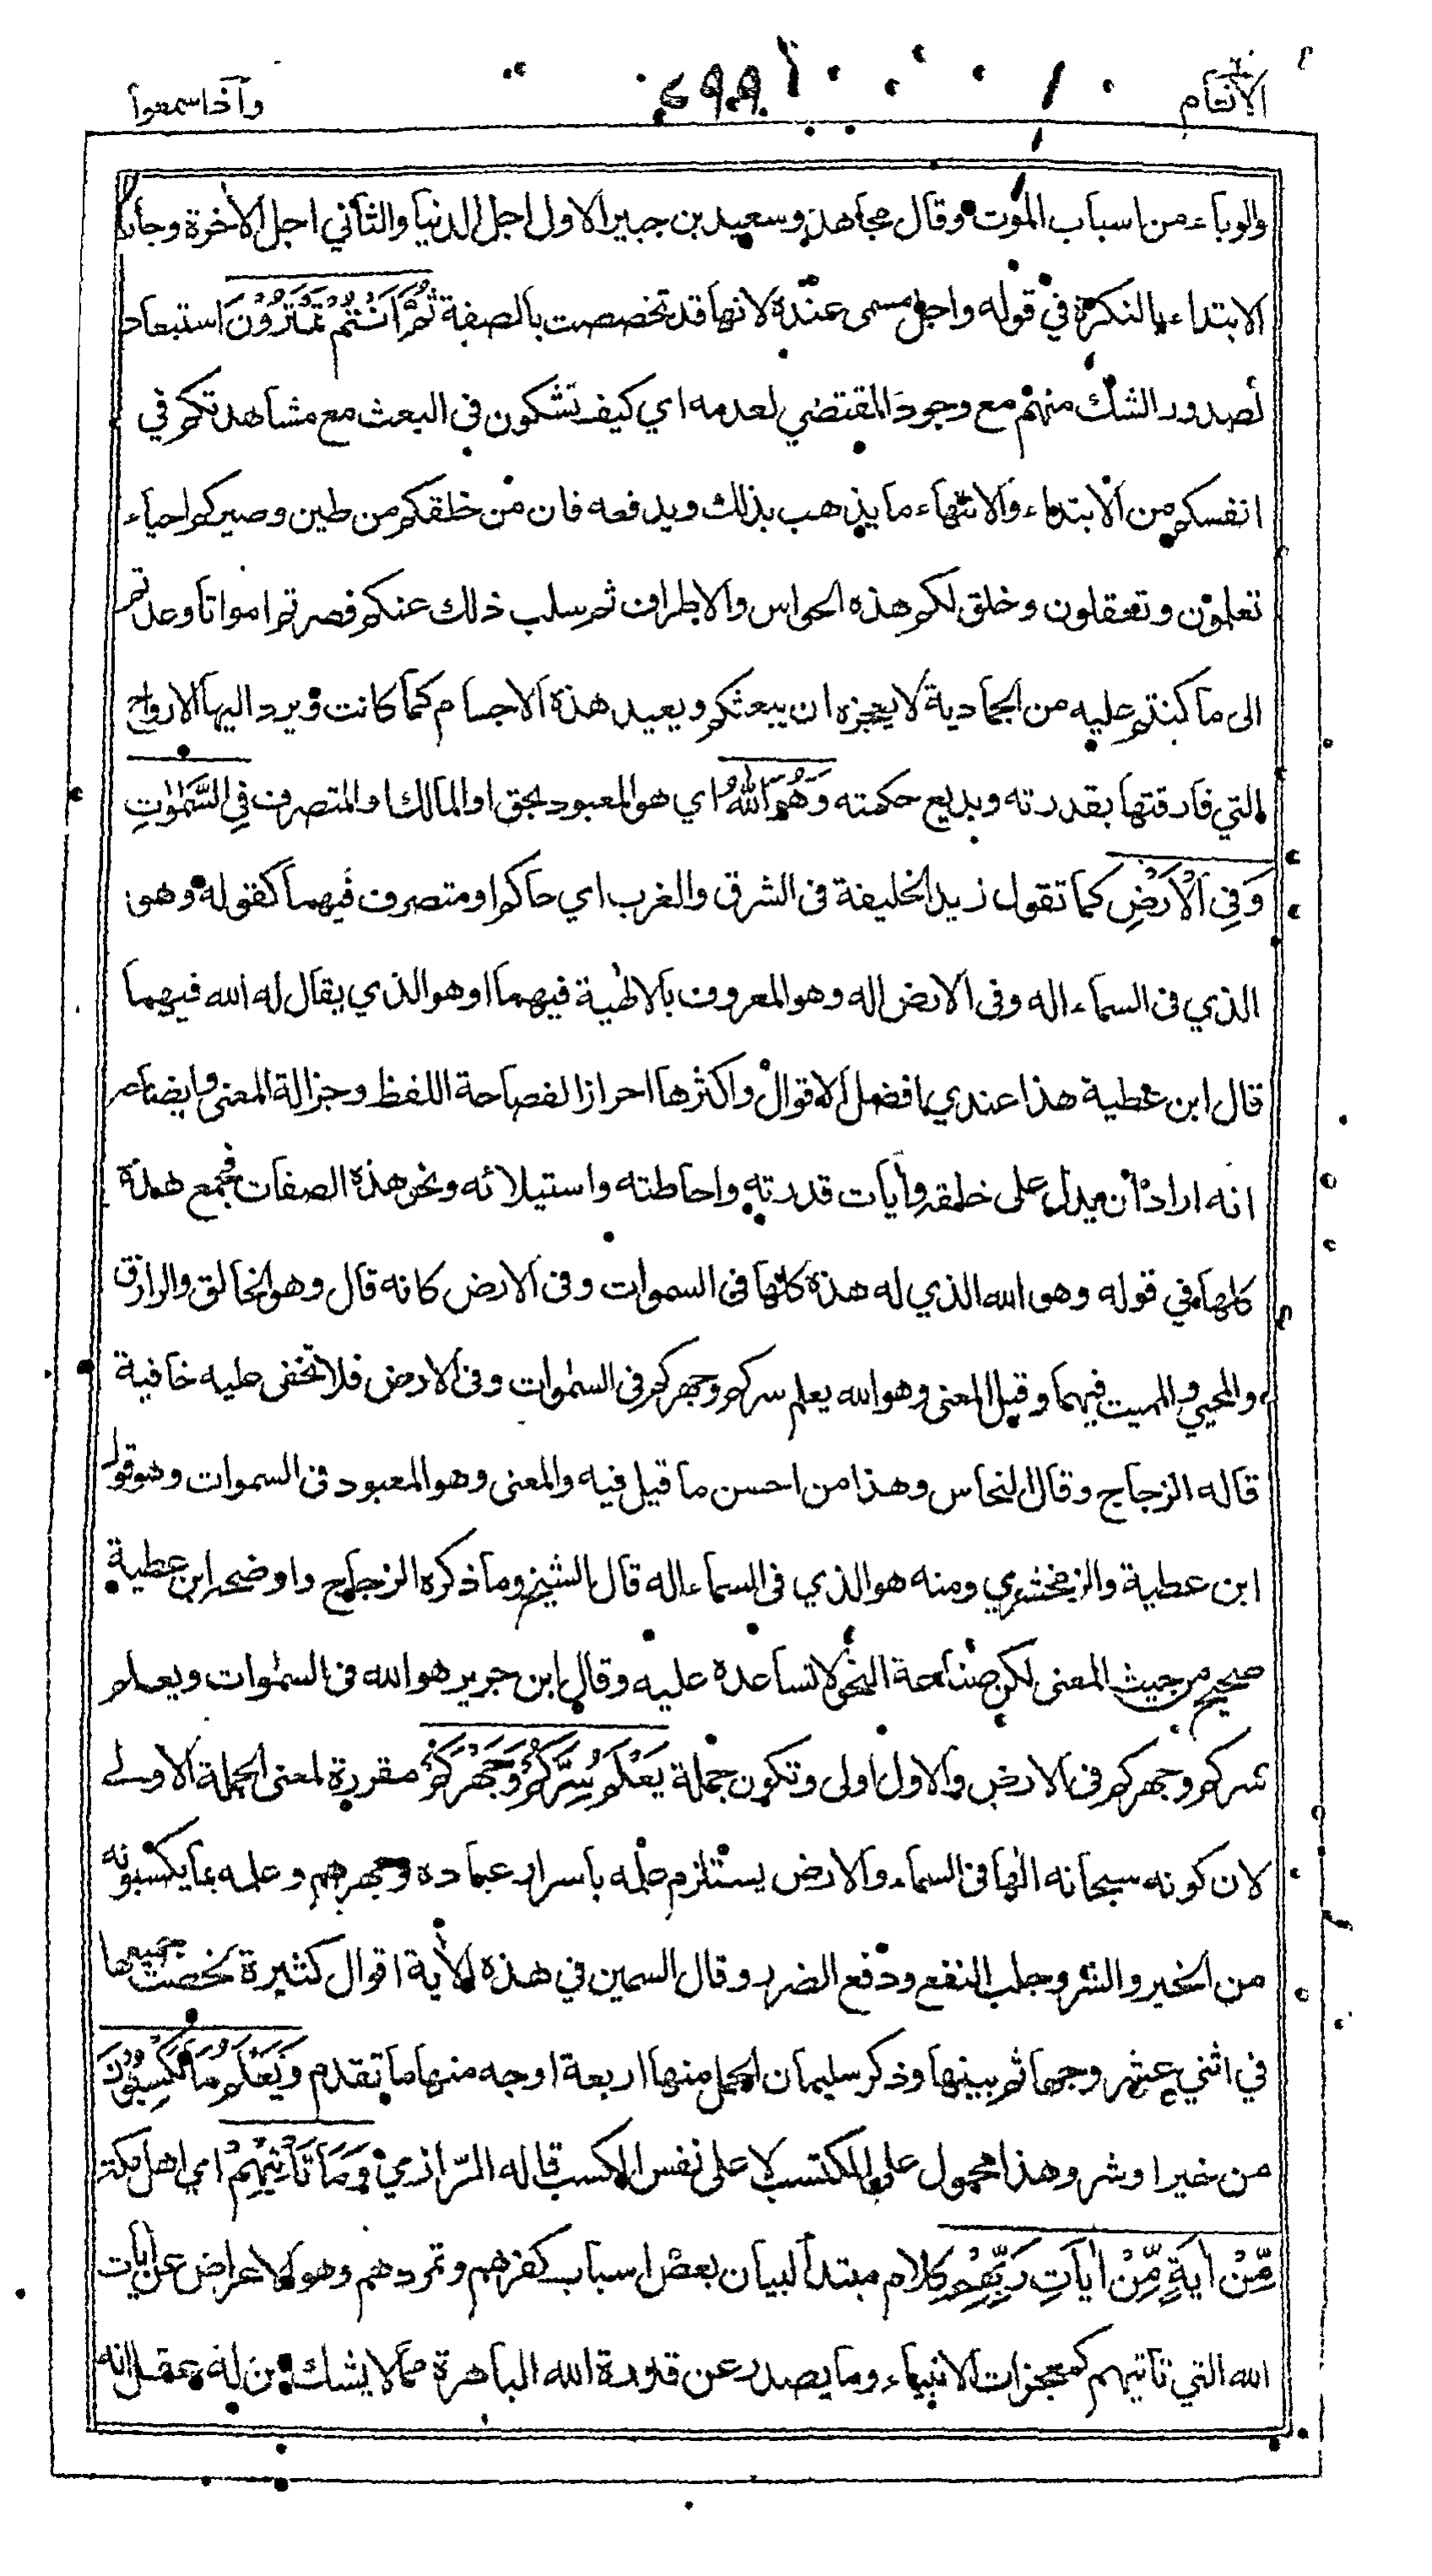 الانعام
٢٩٩
واذا سمعوا
والوباء من اسباب الموت وقال مجاهد وسعيد بن جبير الاول اجل الدنيا والثاني اجل الاخرة وجاز
الابتداء بالنكرة في قوله واجل مسمى عنده لانها قد تخصصت بالصفة ثُمَّ اَنْتُمْ تَمْتَرُوْنَ استبعاد
لصدور الشك منهم مع وجود المقتضي لعدمه اي كيف تشكون في البعث مع مشاهدتكم في
انفسكم من الابتداء والانتهاء ما يذهب بذلك ويدفعه فان من خلقكم من طين وصيركم احياء
تعلمون وتعقلون وخلق لكم هذه الحواس والاطراف ثم سلب ذلك عنكم فصرتم امواتا وعدتم
الى ما كنتم عليه من الجمادية لا يعجزه ان يبعثكم ويعيد هذه الاجسام كما كانت ويرد اليها الارواح
التي فارقتها بقدرته وبديع حكمته وَهُوَ اللّٰهُ اي هو المعبود بحق او المالك او المتصرف فِى السَّمٰوٰتِ
وَفِى الْاَرْضِ كما تقول زيد الخليفة في الشرق والغرب اي حاكم او متصرف فيهما كقوله وهو
الذي في السماء اله وفي الارض اله وهو المعروف بالالٰهية فيهما او هو الذي يقال له الله فيهما
قال ابن عطية هذا عندي افضل الاقوال واكثرها احرازا لفصاحة اللفظ وجزالة المعنى وايضاحه
انه اراد ان يدل على خلقه وايات قدرته واحاطته واستيلائه ونحو هذه الصفات فجمع هذه
كلها في قوله وهو الله الذي له هذه كلها في السموات وفي الارض كانه قال وهو الخالق والرازق
والمحيي والمميت فيهما وقيل المعنى وهو الله يعلم سركم وجهركم في السمٰوات وفي الارض فلا تخفى عليه خافية
قاله الزجاج وقال النحاس وهذا من احسن ما قيل فيه والمعنى وهو المعبود في السموات وهو قول
ابن عطية والزمخشري ومنه هو الذي في السماء اله قال الشيخ وما ذكره الزجاج واوضحه ابن عطية
صحيح من حيث المعنى لكن صناعة النحو لا تساعده عليه وقال ابن جرير هو الله في السمٰوات ويعلم
سركم وجهركم في الارض والاول اولى وتكون جملة يَعْلَمُ سِرَّكُمْ وَجَهْرَكُمْ مقررة لمعنى الجملة الاولى
لان كونه سبحانه الٰها في السماء والارض يستلزم علمه باسرار عباده وجهرهم وعلمه بما يكسبونه
من الخير والشر وجلب النفع ودفع الضرر وقال السمين في هذه الأية اقوال كثيرة لخصت جميعها
في اثني عشر وجها ثم بينها وذكر سليمان الجمل منها اربعة اوجه منها ما تقدم وَيَعْلَمُ مَا تَكْسِبُوْنَ
من خير او شر وهذا محمول على المكتسب لا على نفس الكسب قاله الرازي وَمَا تَأْتِيْهِمْ اي اهل مكة
مِّنْ اٰيَةٍ مِّنْ اٰيَاتِ رَبِّهِمْ كلام مبتدأ لبيان بعض اسباب كفرهم وتمردهم وهو الاعراض عن ايات
الله التي تاتيهم كمعجزات الانبياء وما يصدر عن قدرة الله الباهرة مما لا يشك من له عقل انه